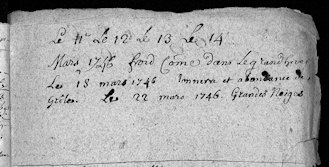 Le 11e Le 12 Le 13 Le 14
Mars 1746 froid Come dans Le grand hyver
Les 18 mars 1746 tonnera et abondance de
Grêles. Le 22 mars 1746. Grandes Neiges